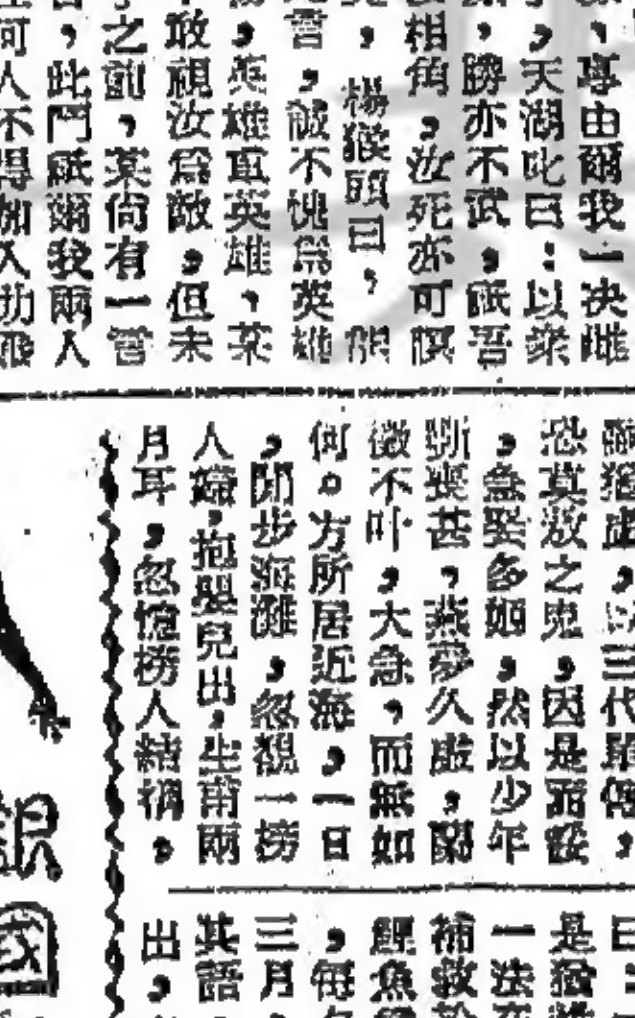 專由爾我一決雌
天湖叱曰：以衆
勝亦不武，祇吾
相角，汝死亦可瞑
楊猴頭曰，
言，誠不愧爲英雄
英雄重英雄，某
敢視汝爲敵，但未
之前，某尚有一言
，此鬥祇爾我兩人
何人不得加入助
猶虛，以三代單傳，
恐莫敖之鬼，因是而
，急娶多如，然以少年
斲喪甚，燕夢久虛，蘭
徵不叶，大急，而無如
何。方所居近海，一日
，閒步海灘，忽覩一榜
人婦，抱嬰兒出，生甫兩
月耳，忽憶榜人結褵，
曰：
是猶
一法
補救
鯉魚
，每
三月，
其語
出，
銀